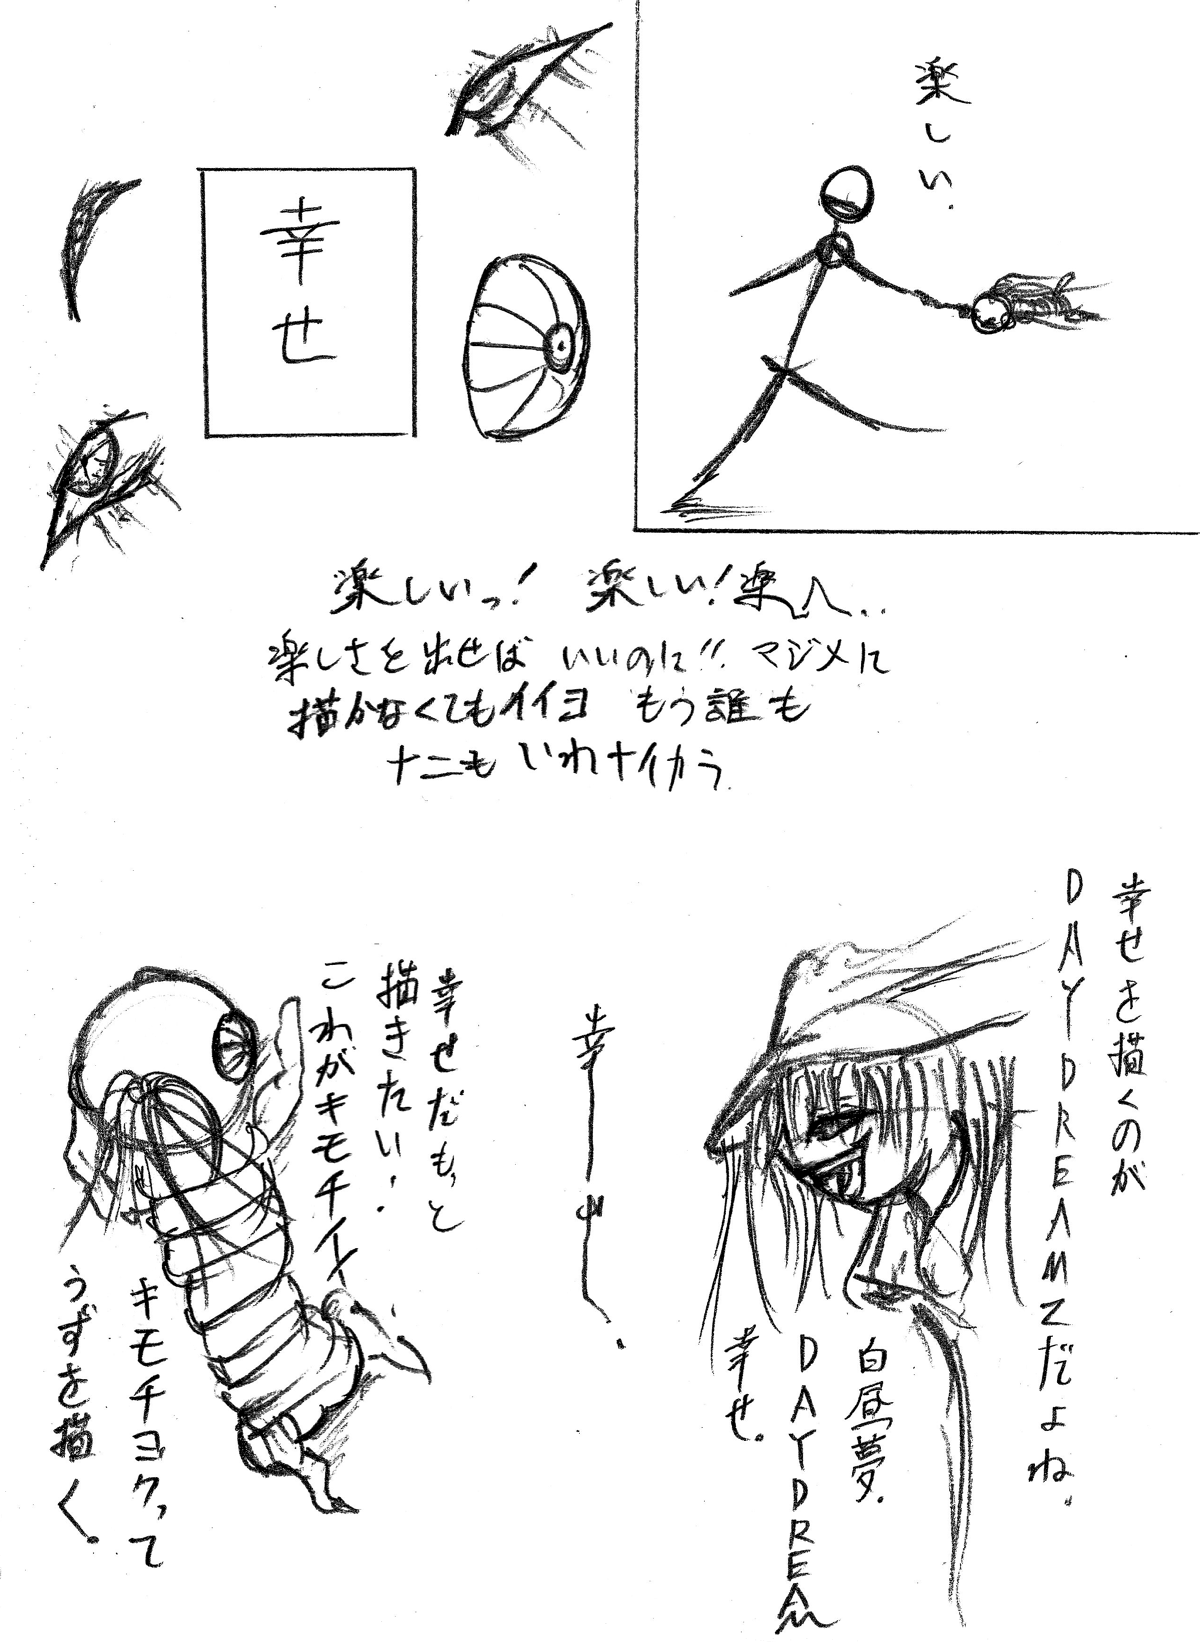 楽しい.
幸せ
楽しいっ! 楽しい!楽
楽しさを出せばいいのに!! マジメに
描かなくてもイイヨ もう誰も
ナニも いれナイカラ.
幸せを描くのが
DAYDREAMZだよね.
白昼夢.
DAYDREAM
幸せ.
幸せ.
幸せだもっと
描きたい!
これがキモチイイ
キモチヨクって
うずを描く.